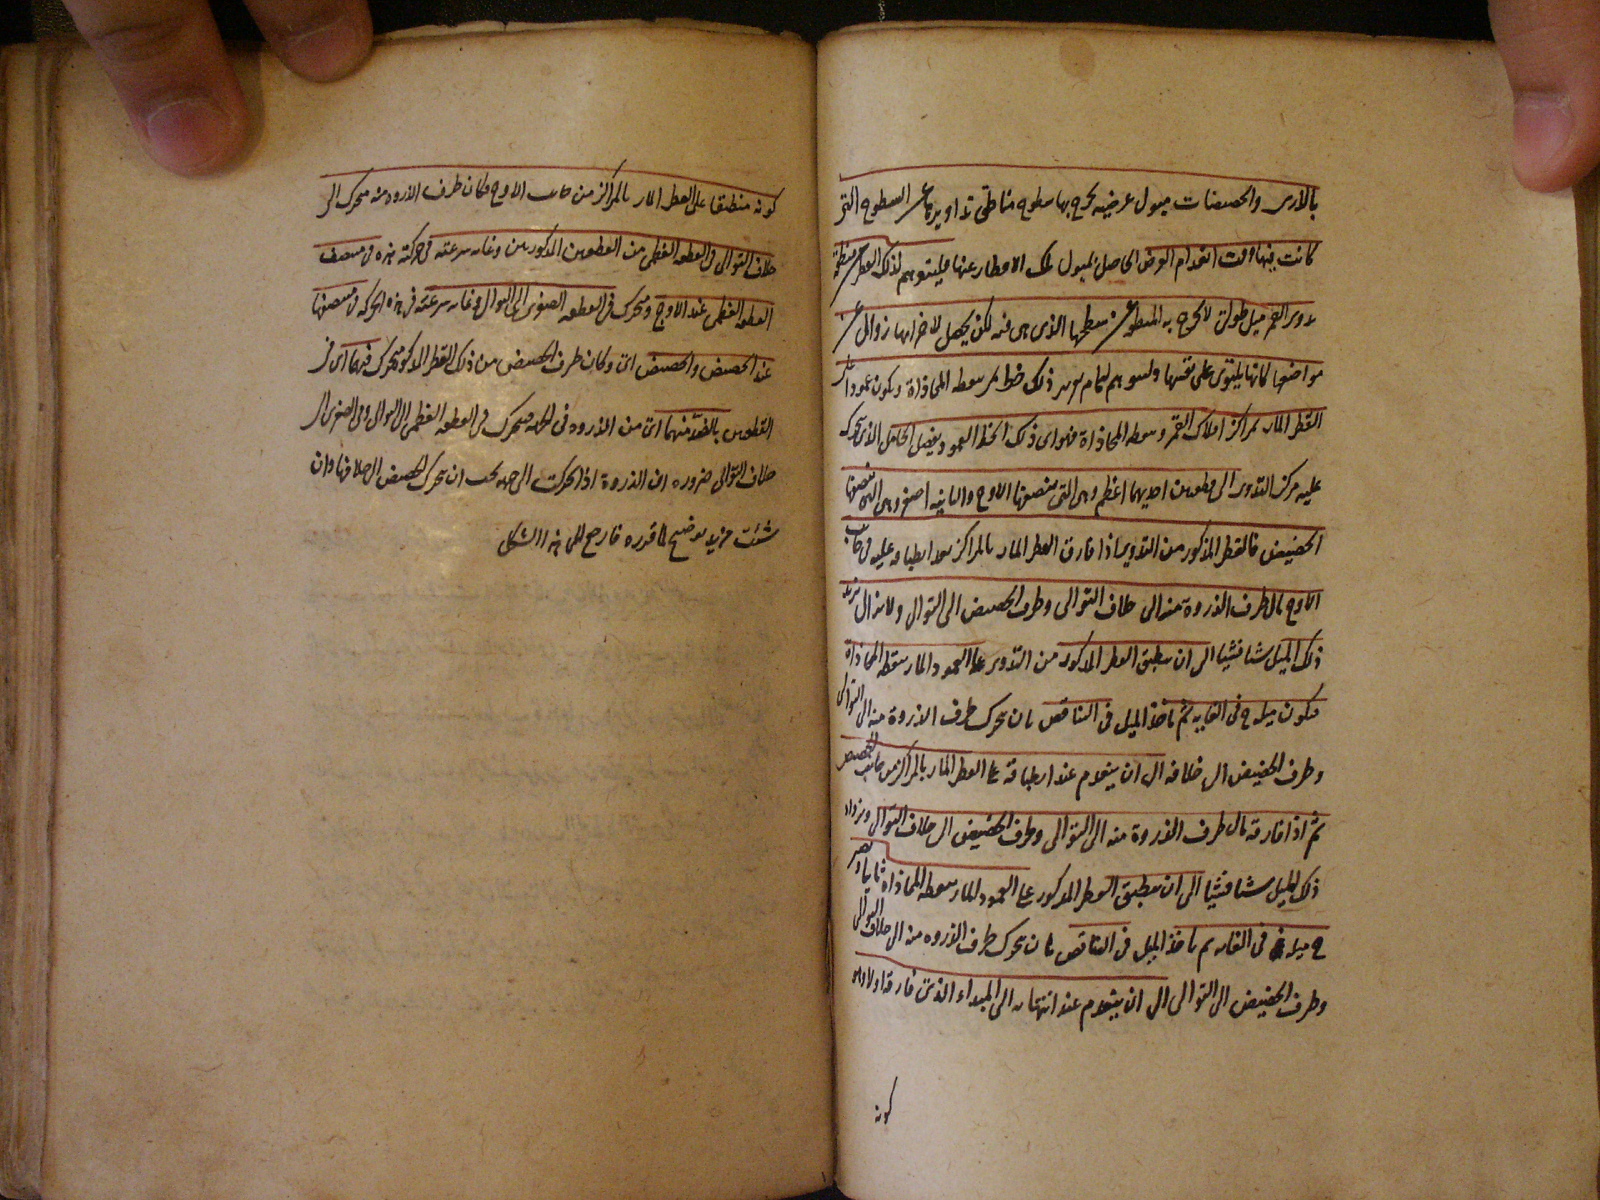 بالذرى والحضيضات ميول عرضيه تخرج بها سطوح مناطق تداويرها عن السطوح التى
كانت فيها وقت انعدام العرض الحاصل لميول تلك الاقطار عنها فليتوهم لذلك القطر من منطقة
تدوير القمر ميل طولى لا تخرج به المنطقه عن سطحها الذى هى فيه لكن يحصل لاجزائها زوال عن
مواضعها كانها يلتوى على نفسها وليتوهم لتمام تصوير ذلك خط يمر بنقطه المحاذاة ويكون عمودا على
القطر المار بمراكز افلاك القمر ونقطه المحاذاة فهو اى ذلك الخط العمود يفصل الحامل الذى يتحرك
عليه مركز التدوير الى قطعتين احديهما اعظم وهى التى منصفها الاوج والثانيه اصغر وهى التى منصفها
الحضيض فالقطر المذكور من التدوير اذا فارق القطر المار بالمراكز بعد انطباقه عليه فى جانب
الاوج مال طرف الذروة منه الى خلاف التوالى وطرف الحضيض الى التوالى ولا يزال يزيد
ذلك الميل شيئا فشيئا الى ان ينطبق القطر المذكور من التدوير على العمود المار بنقطه المحاذاة
فيكون ميله ح فى الغايه ثم ياخذ الميل فى التناقص بان تحرك طرف الذروة منه الى التوالى
وطرف الحضيض الى خلافه الى ان ينعدم عند انطباقه على القطر المار بالمراكز من جانب الحضيض
ثم اذا فارقه مال طرف الذروة منه الى التوالى وطرف الحضيض الى خلاف التوالى ويزداد
ذلك الميل شيئا فشيئا الى ان ينطبق القطر المذكور على العمود المار بنقطه المحاذاة ثانيا ويصير
ح ميله فى الغايه ثم ياخذ الميل فى التناقص بان تحرك طرف الذروه منه الى خلاف التوالى
وطرف الحضيض الى التوالى الى ان ينعدم عند انتهائه الى المبداء الذى فارقه اولا وهو
كونه
كونه منطبقا على القطر المار بالمراكز من جانب الاوج فكان طرف الذروه منه متحرك الى
خلاف التوالى فى القطعه العظمى من القطعتين المذكورتين وغايه سرعته فى حركته هذه فى منصف
القطعه العظمى عند الاوج ومتحرك فى القطعه الصغرى الى التوالى وغايه سرعته فى هذه الحركه فى منصفها
عند الحضيض والحضيض اى وكان طرف الحضيض من ذلك القطر المذكور متحرك فيهما اى فى
القطعتين بالضد منهما اى من الذروه فى الجهه متحرك فى القطعه العظمى الى التوالى وفى الصغرى الى
خلاف التوالى ضروره ان الذروة اذا تحركت الى جهه يجب ان يتحرك الحضيض الى خلافها وان
شئت مزيد توضيح لما قرره فارجع الى هذا الشكل